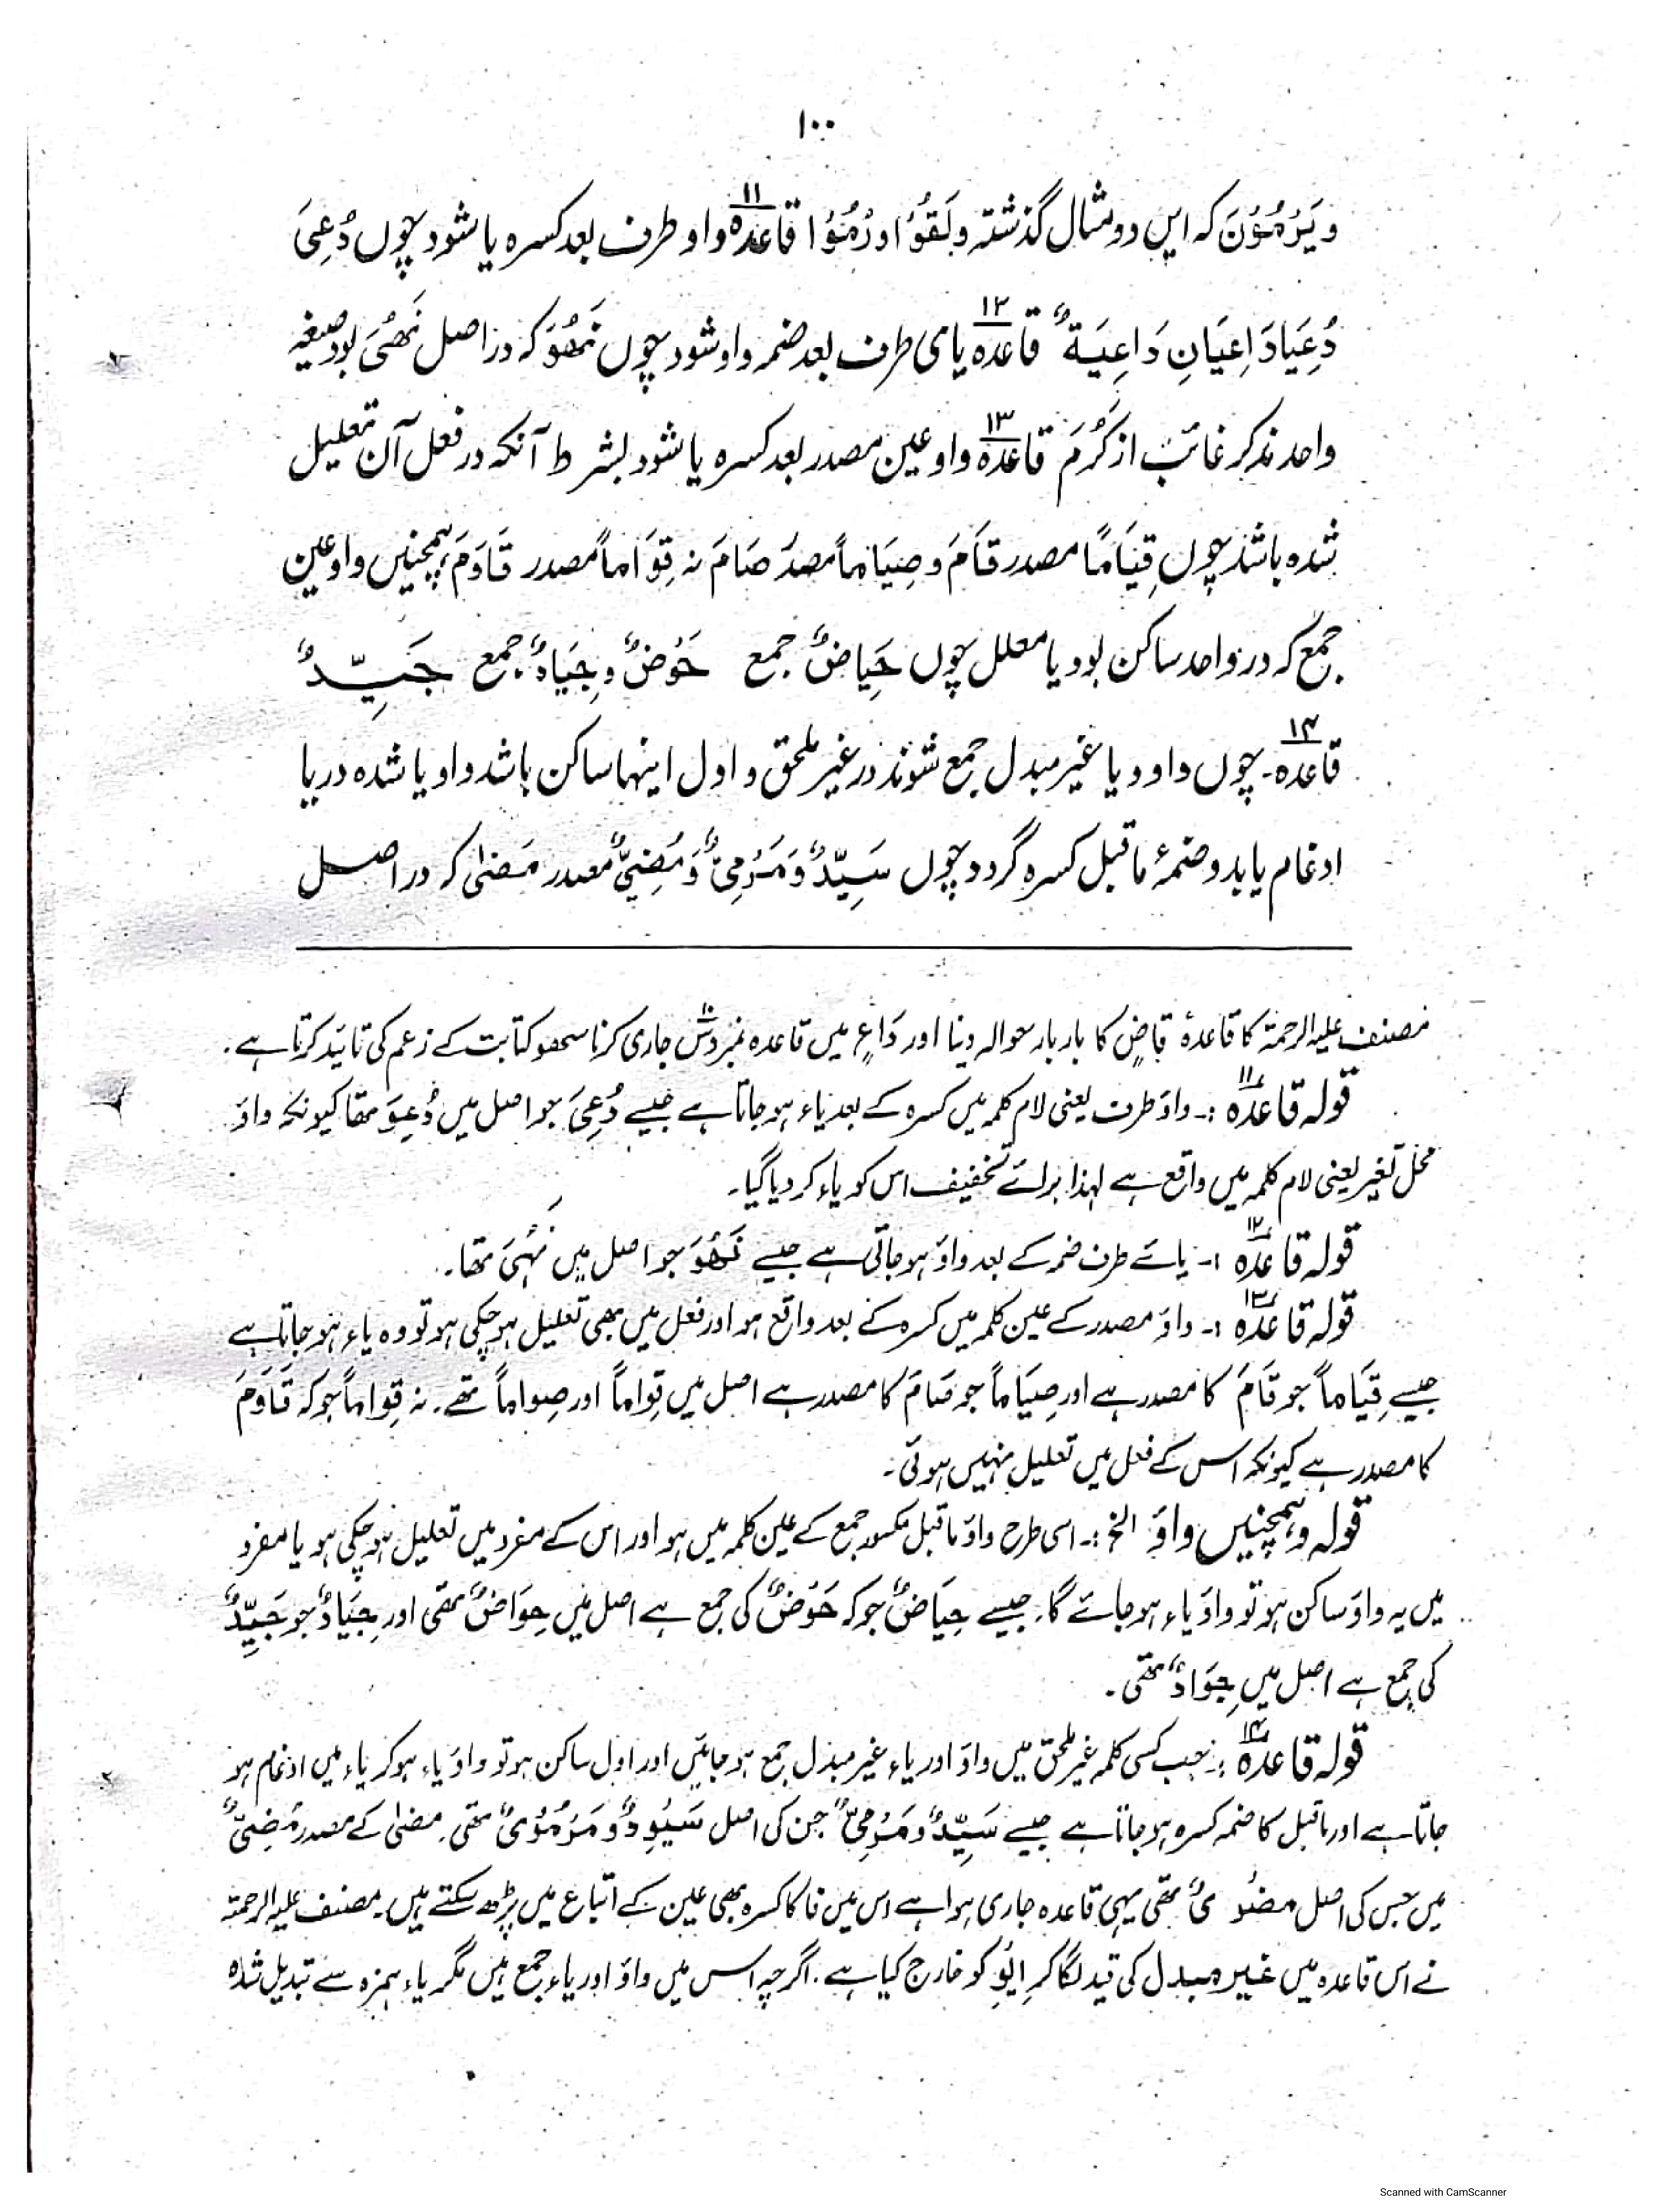 ۱۰۰
و یَرْمُوْنَ کہ ایں دو مثال گذشتہ و لَقُوْا و رُمُوْا قاعدہ ۱۱ واو طرف بعد کسرہ یا شود چوں دُعِیَ
دُعِیَا دَاعِیَانِ دَاعِیَۃٌ قاعدہ ۱۲ یای طرف بعد ضمہ واو شود چوں نَھُوَ کہ در اصل نَھُیَ بود صیغہ
واحد مذکر غائب از کَرُمَ قاعدہ ۱۳ واو عین مصدر بعد کسرہ یا شود بشرط آنکہ در فعل آن تعلیل
شدہ باشد چوں قِیَامًا مصدر قَامَ و صِیَامًا مصدر صَامَ نہ قِوَامًا مصدر قَاوَمَ ہمچنیں واو عین
جمع کہ در واحد ساکن بود یا معلل چوں حِیَاضٌ جمع حَوْضٌ و جِیَادٌ جمع جَیِّدٌ
قاعدہ ۱۴۔ چوں واو و یا غیر مبدل جمع شوند در غیر ملحق و اول اینہا ساکن باشد واو یا شدہ در یا
ادغام یابد و ضمۂ ماقبل کسرہ گردد چوں سَیِّدٌ وَ مَرْمِیٌّ وَ مُضِیٌّ مصدر مَضیٰ کہ در اصل
مصنف علیہ الرحمۃ کا قاعدۂ قاضٍ کا بار بار حوالہ دینا اور دَاعٍ میں قاعدہ نمبر دش۱۰ جاری کرنا سھو کتابت کے زعم کی تائید کرتا ہے۔
قولہ قاعدہ ۱۱ :۔ واؤ طرف یعنی لام کلمہ میں کسرہ کے بعد یاء ہو جاتا ہے جیسے دُعِیَ جو اصل میں دُعِوَ تھا کیونکہ واؤ
محل تغیر یعنی لام کلمہ میں واقع ہے لہذا برائے تخفیف اس کو یاء کر دیا گیا۔
قولہ قاعدہ ۱۲ :۔ یائے طرف ضمہ کے بعد واؤ ہو جاتی ہے جیسے نَھُوَ جو اصل میں نَہُیَ تھا۔
قولہ قاعدہ ۱۳ :۔ واؤ مصدر کے عین کلمہ میں کسرہ کے بعد واقع ہو اور فعل میں بھی تعلیل ہو چکی ہو تو وہ یاء ہو جاتا ہے
جیسے قِیَاماً جو قَامَ کا مصدر ہے اور صِیَاماً جو صَامَ کا مصدر ہے اصل میں قِواماً اور صِواماً تھے۔ نہ قِواماً جو کہ قَاوَمَ
کا مصدر ہے کیونکہ اس کے فعل میں تعلیل نہیں ہوتی۔
قولہ وہمچنیں واؤ الخ :۔ اسی طرح واؤ ماقبل مکسور جمع کے عین کلمہ میں ہو اور اس کے مفرد میں تعلیل ہو چکی ہو یا مفرد
میں یہ واؤ ساکن ہو تو واؤ یاء ہو جائے گا۔ جیسے حِیَاضٌ جو کہ حَوْضٌ کی جمع ہے اصل میں حِوَاضٌ تھی اور جِیَادٌ جو جَیِّدٌ
کی جمع ہے اصل میں جِوَادٌ تھی۔
قولہ قاعدہ ۱۴ :۔ جب کسی کلمہ غیر ملحق میں واؤ اور یاء غیر مبدل جمع ہو جائیں اور اول ساکن ہو تو واؤ یاء ہو کر یاء میں ادغام ہو
جاتا ہے اور ماقبل کا ضمہ کسرہ ہو جاتا ہے جیسے سَیِّدٌ و مَرْمِیٌّ جن کی اصل سَیْوِدٌ و مَرْمُوْیٌ تھی۔ مضیٰ کے مصدر مُضِیٌّ
میں جس کی اصل مضُوْیٌ تھی یہی قاعدہ جاری ہوا ہے اس میں فا کا کسرہ بھی عین کے اتباع میں پڑھ سکتے ہیں۔ مصنف علیہ الرحمۃ
نے اس قاعدہ میں غیر مبدل کی قید لگا کر اِیْوِ کو خارج کیا ہے۔ اگرچہ اس میں واؤ اور یاء جمع ہیں مگر یاء ہمزہ سے تبدیل شدہ
Scanned with CamScanner